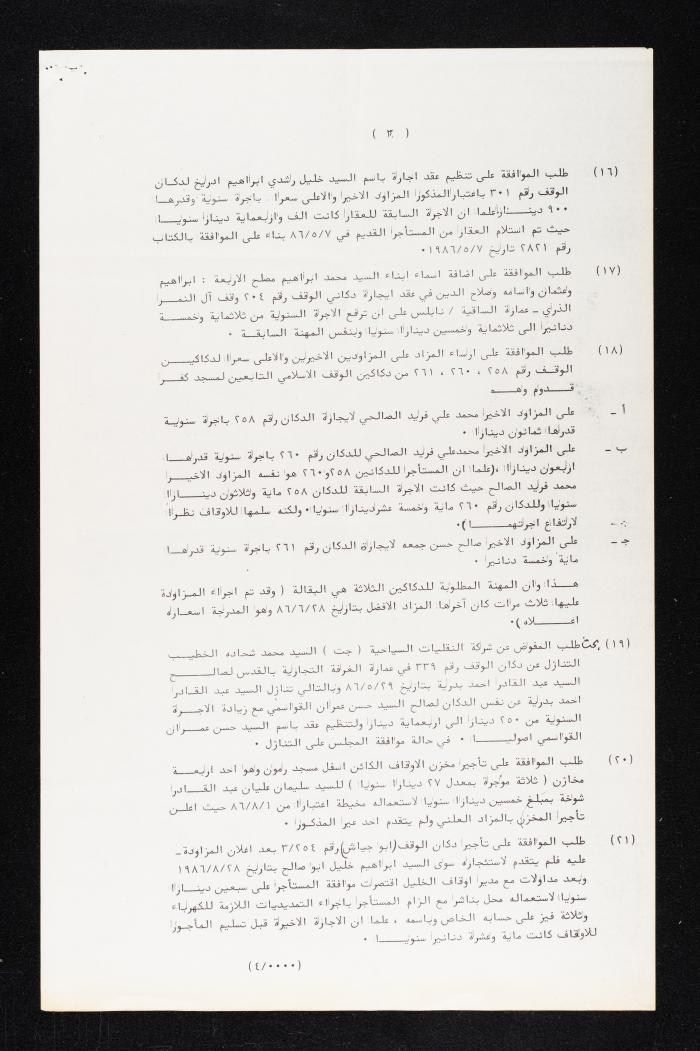 ( ٣ )
(١٦) طلب الموافقة على تنظيم عقد اجارة باسم السيد خليل رشدي ابراهيم ادريخ لدكان
الوقف رقم ٣٠١ باعتبار المذكور المزاود الاخير والاعلى سعرا . باجرة سنوية وقدرها
٩٠٠ دينار علما ان الاجرة السابقة للعقار كانت الف واربعماية دينار سنويا
حيث تم استلام العقار من المستأجر القديم في ٨٦/٥/٧ بناء على الموافقة بالكتاب
رقم ٢٨٢١ تاريخ ١٩٨٦/٥/٧ .
(١٧) طلب الموافقة على اضافة اسماء ابناء السيد محمد ابراهيم مصلح الاربعة : ابراهيم
وعثمان واسامه وصلاح الدين في عقد ايجارة دكاني الوقف رقم ٢٠٤ وقف آل النمر
الذري ـ عمارة الساقية / نابلس على ان ترفع الاجرة السنوية من ثلاثماية وخمسة
دنانير الى ثلاثماية وخمسين دينارا سنويا وبنفس المهنة السابقة .
(١٨) طلب الموافقة على ارساء المزاد على المزاودين الاخيرين والاعلى سعرا لدكاكين
الوقف رقم ٢٥٨ ، ٢٦٠ ، ٢٦١ من دكاكين الوقف الاسلامي التابعين لمسجد كفر
قدوم وهم
أ ـ على المزاود الاخير محمد علي فريد الصالحي لايجارة الدكان رقم ٢٥٨ باجرة سنوية
قدرها ثمانون دينارا .
ب ـ على المزاود الاخير محمدعلي فريد الصالحي للدكان رقم ٢٦٠ باجرة سنوية قدرها
اربعون دينارا ،(علما ان المستأجر للدكانين ٢٥٨و٢٦٠ هو نفسه المزاود الاخير
محمد فريد الصالح حيث كانت الاجرة السابقة للدكان ٢٥٨ ماية وثلاثون دينارا
سنويا وللدكان رقم ٢٦٠ ماية وخمسة عشردينارا سنويا. ولكنه سلمها للاوقاف نظرا
لارتفاع اجرتهما ).
جـ ـ على المزاود الاخير صالح حسن جمعه لايجارة الدكان رقم ٢٦١ باجرة سنوية قدرها
ماية وخمسة دنانير .
هذا وان المهنة المطلوبة للدكاكين الثلاثة هي البقالة ( وقد تم اجراء المزاودة
عليها ثلاث مرات كان آخرها المزاد الافضل بتاريخ ٨٦/٦/٢٨ وهو المدرجة اسعاره
اعلاه ).
(١٩) طلب المفوض عن شركة النقليات السياحية ( جت ) السيد محمد شحاده الخطيب
التنازل عن دكان الوقف رقم ٣٣٩ في عمارة الغرفة التجارية بالقدس لصالح
السيد عبد القادر احمد بدرية بتاريخ ٨٦/٥/٢٩ وبالتالي تنازل السيد عبد القادر
احمد بدرية عن نفس الدكان لصالح السيد حسن عمران القواسمي مع زيادة الاجرة
السنوية من ٢٥٠ دينار الى اربعماية دينار ولتنظيم عقد باسم السيد حسن عمران
القواسمي اصوليا . في حالة موافقة المجلس على التنازل .
(٢٠) طلب الموافقة على تأجير مخزن الاوقاف الكائن اسفل مسجد رمون وهو احد اربعة
مخازن ( ثلاثة مؤجرة بمعدل ٢٧ دينارا سنويا ) للسيد سليمان عليان عبد القادر
شوخة بمبلغ خمسين دينارا سنويا لاستعماله مخيطة اعتبارا من ٨٦/٨/١ حيث اعلن
تأجير المخزن بالمزاد العلني ولم يتقدم احد غير المذكور .
(٢١) طلب الموافقة على تأجير دكان الوقف(ابو جياش)رقم ٣/٢٥٤ بعد اعلان المزاودة ـ
عليه فلم يتقدم لاستئجاره سوى السيد ابراهيم خليل ابو صالح بتاريخ ١٩٨٦/٨/٢٨
وبعد مداولات مع مدير اوقاف الخليل اقتصرت موافقة المستأجر على سبعين دينارا
سنويا لاستعماله محل بناشر مع الزام المستأجر باجراء التمديدات اللازمة للكهرباء
وثلاثة فيز على حسابه الخاص وباسمه ، علما ان الاجارة الاخيرة قبل تسليم المأجور
للاوقاف كانت ماية وعشرة دنانير سنويا .
(٤/٠٠٠٠)